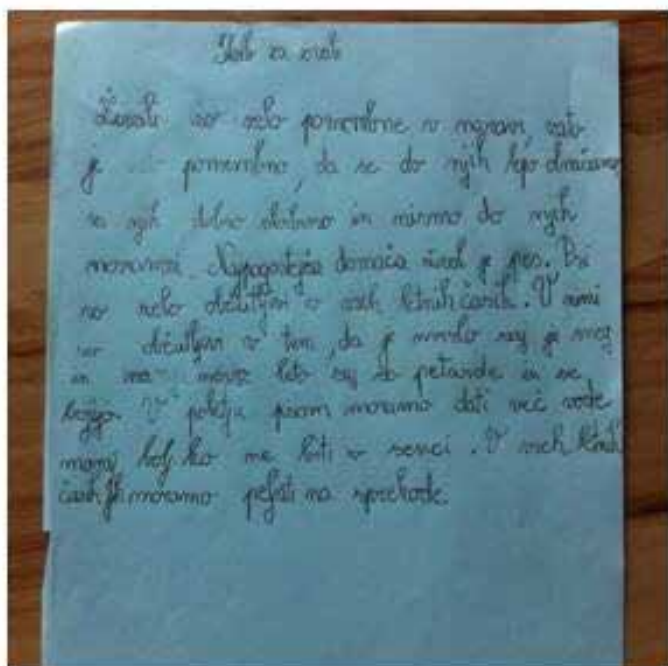 Skrb za živali
Živali so zelo pomembne v naravi, zato
je pomembno, da se do njih lepo obnašamo
za njih dobro skrbimo in nismo do njih
nesramni. Najpogostejša domača žival je pes. Psi
so zelo občutljivi v vseh letnih časih. V zimi
so občutljivi v tem, da je mrzlo saj je sneg
in na novo leto saj so petarde in se
bojijo. V poletju psom moramo dati več vode
morajo biti v senci. V vseh letnih
časih jih moramo peljati na sprehode.